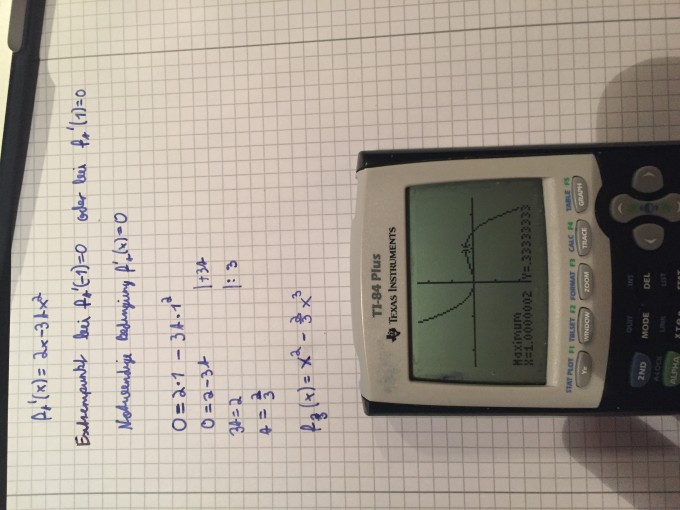 fₐ'(x) = 2x - 3ax²
Extrempunkt bei fₐ'(-1)=0 oder bei fₐ'(1)=0
Notwendige Bedingung fₐ'(x)=0
0 = 2·1 - 3a·1²
0 = 2 - 3a |+3a
3a = 2 |:3
a = 2/3
f 2/3 (x) = x² - 2/3 x³
TI-84 Plus
TEXAS INSTRUMENTS
Maximum
X=1.0000002 Y=.33333333
STAT PLOT F1 TBLSET F2 FORMAT F3 CALC F4 TABLE F5
Y= WINDOW ZOOM TRACE GRAPH
QUIT INS
2ND MODE DEL
A-LOCK LINK LIST
ALPHA